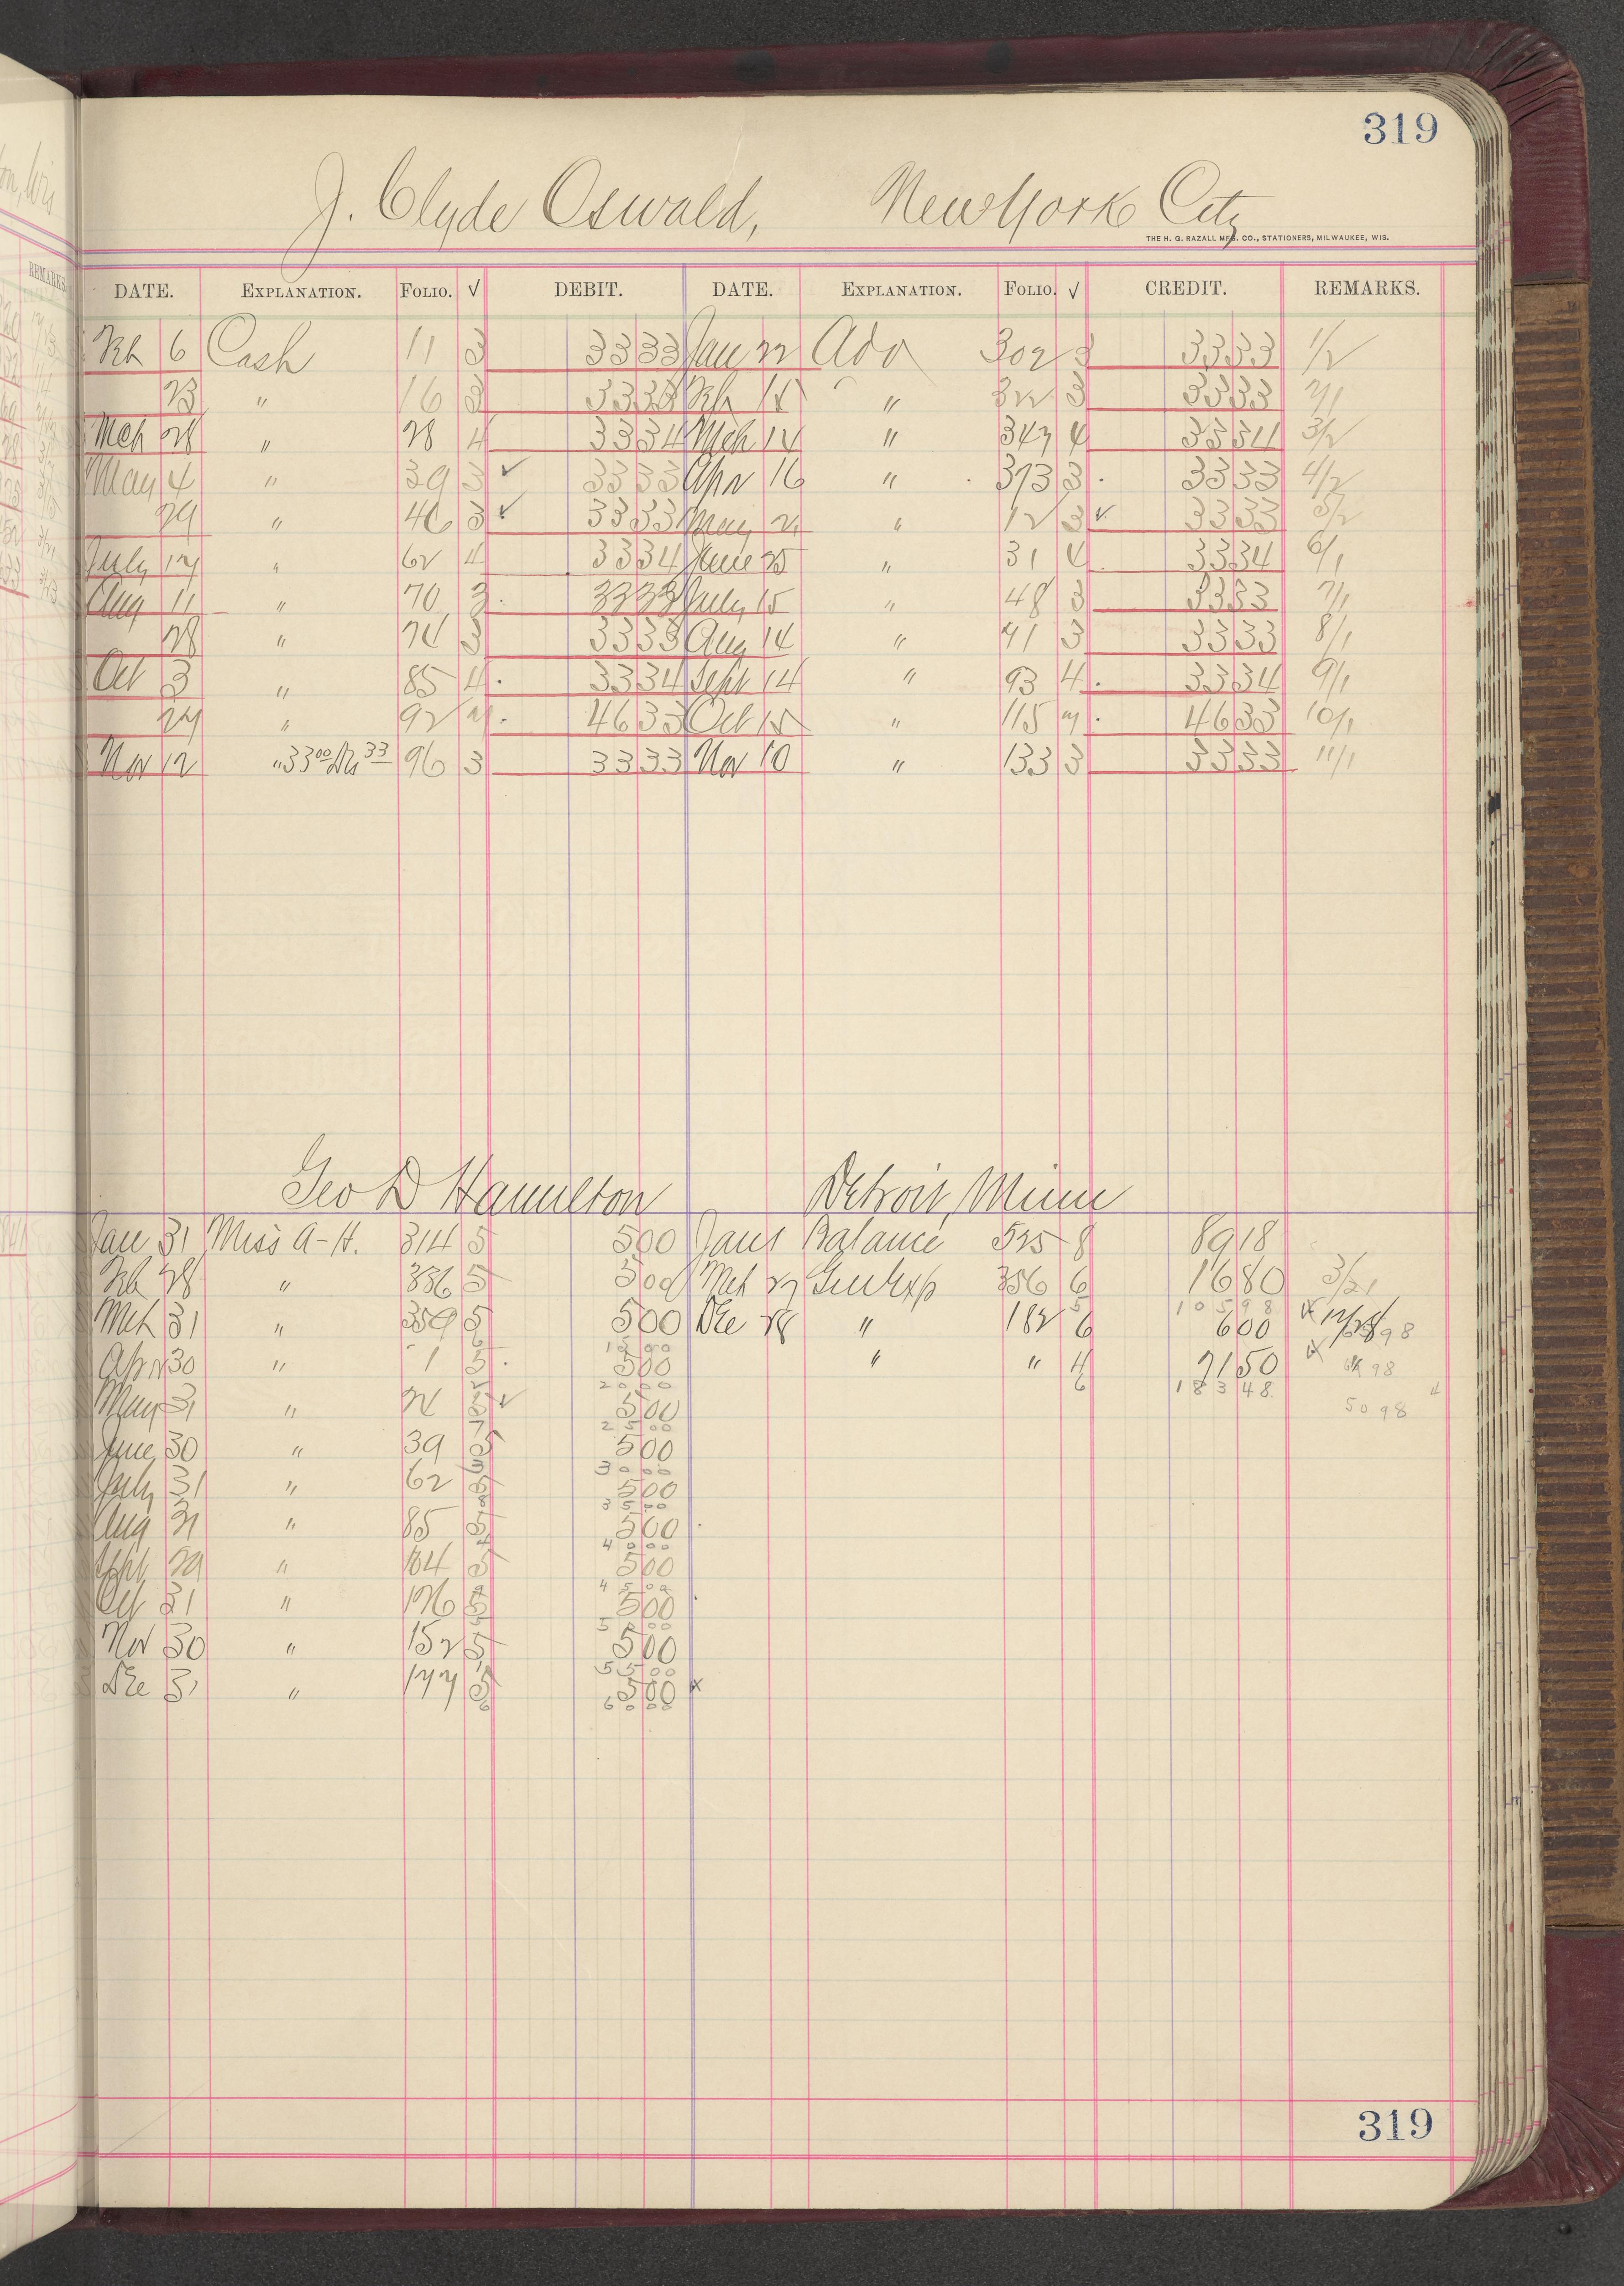 319
J. Clyde Oswald, New York City
THE H. G. RAZALL MFG. CO., STATIONERS, MILWAUKEE, WIS.
DATE. EXPLANATION. FOLIO. √ DEBIT. DATE. EXPLANATION. FOLIO. √ CREDIT. REMARKS.
Feb 6 Cash 11 3 3333 Jan 22 Adv 302 3 3333 1/2
23 " 16 3 3333 Feb 15 " 322 3 3333 2/1
Mch 28 " 28 4 3334 Mch 12 " 347 4 3334 3/2
May 4 " 39 3 ✓ 3333 Apr 16 " 373 3 3333 4/2
29 " 46 3 ✓ 3333 May 21 " 12 3 ✓ 3333 5/2
July 17 " 62 4 3334 June 25 " 31 4 3334 6/1
Aug 11 " 70 3 3333 July 15 " 48 3 3333 7/1
28 " 74 3 3333 Aug 14 " 71 3 3333 8/1
Oct 3 " 85 4 3334 Sept 14 " 93 4 3334 9/1
27 " 92 7 4633 Oct 15 " 115 7 4633 10/1
Nov 12 " 33 00 33 96 3 3333 Nov 10 " 133 3 3333 11/1
Geo D Hamilton Detroit, Minn
Jan 31 Miss A-H. 314 5 500 Jan 1 Balance 525 8 8918
Feb 28 " 336 5 500 Mch 27 Gen Exp 356 6 1680 3/21
10598
Mch 31 " 359 5 500 Dec 28 " 182 6 600 12/28
1500
Apr 30 " 1 5 500 " " 4 7150
2000 18348
May 31 " 21 5 ✓ 500 5098
2500
June 30 " 39 5 500
3000
July 31 " 62 5 500
3500
Aug 31 " 85 5 500
4000
Sept 29 " 104 5 500
4500
Oct 31 " 126 5 500
5000
Nov 30 " 152 5 500
5500
Dec 31 " 177 5 500 x
6000
319